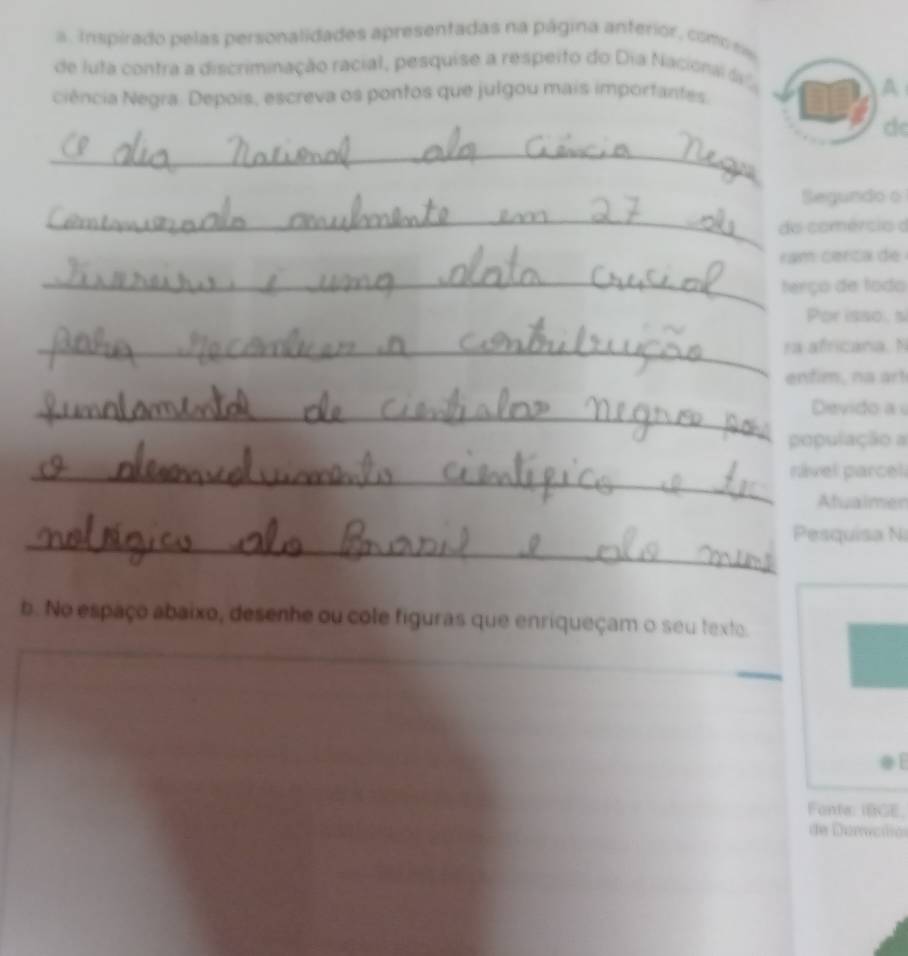 a. Inspirado pelas personalidades apresentadas na página anterior, como
de luta contra a discriminação racial, pesquise a respeito do Dia Nacional da
ciência Negra. Depois, escreva os pontos que julgou mais importantes.
o dia nacional da Ciência Neg
comemorado anulmente em 27 de
é uma data crucial
para reconhecer a contribuição
fundamental de cientistas negros
o desenvolvimento científico e tec
nológico do Brasil e do mun
b. No espaço abaixo, desenhe ou cole figuras que enriqueçam o seu texto.
A
do
Segundo o
do comércio d
ram cerca de
terço de todo
Por isso, s
ra africana. N
enfim, na art
Devido a
população a
rável parcel
Atualmen
Pesquisa Na
Fonte: IBGE,
de Domicílio